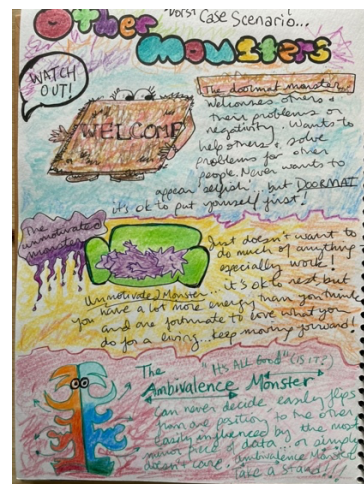 Worst Case Scenario...
Other
Monsters
WATCH
OUT!
WELCOME
The doormat monster
Welcomes others &
their problems or
negativity. Wants to
help others & solve
problems for other
people. Never wants to
appear 'selfish'...but DOORMAT
it's ok to put yourself first!
The
unmotivated
monster
Just doesn't want to
do much of anything
especially work!
Unmotivated Monster...it's ok to rest but
you have a lot more energy than you think
and are fortunate to love what you
do for a living...keep moving forward
"It's ALL Good" (IS IT?)
The
Ambivalence Monster
Can never decide, easily flips
from one position to the other
easily influenced by the most
minor piece of data, or simply
doesn't care. Ambivalence Monster
Take a Stand!!!